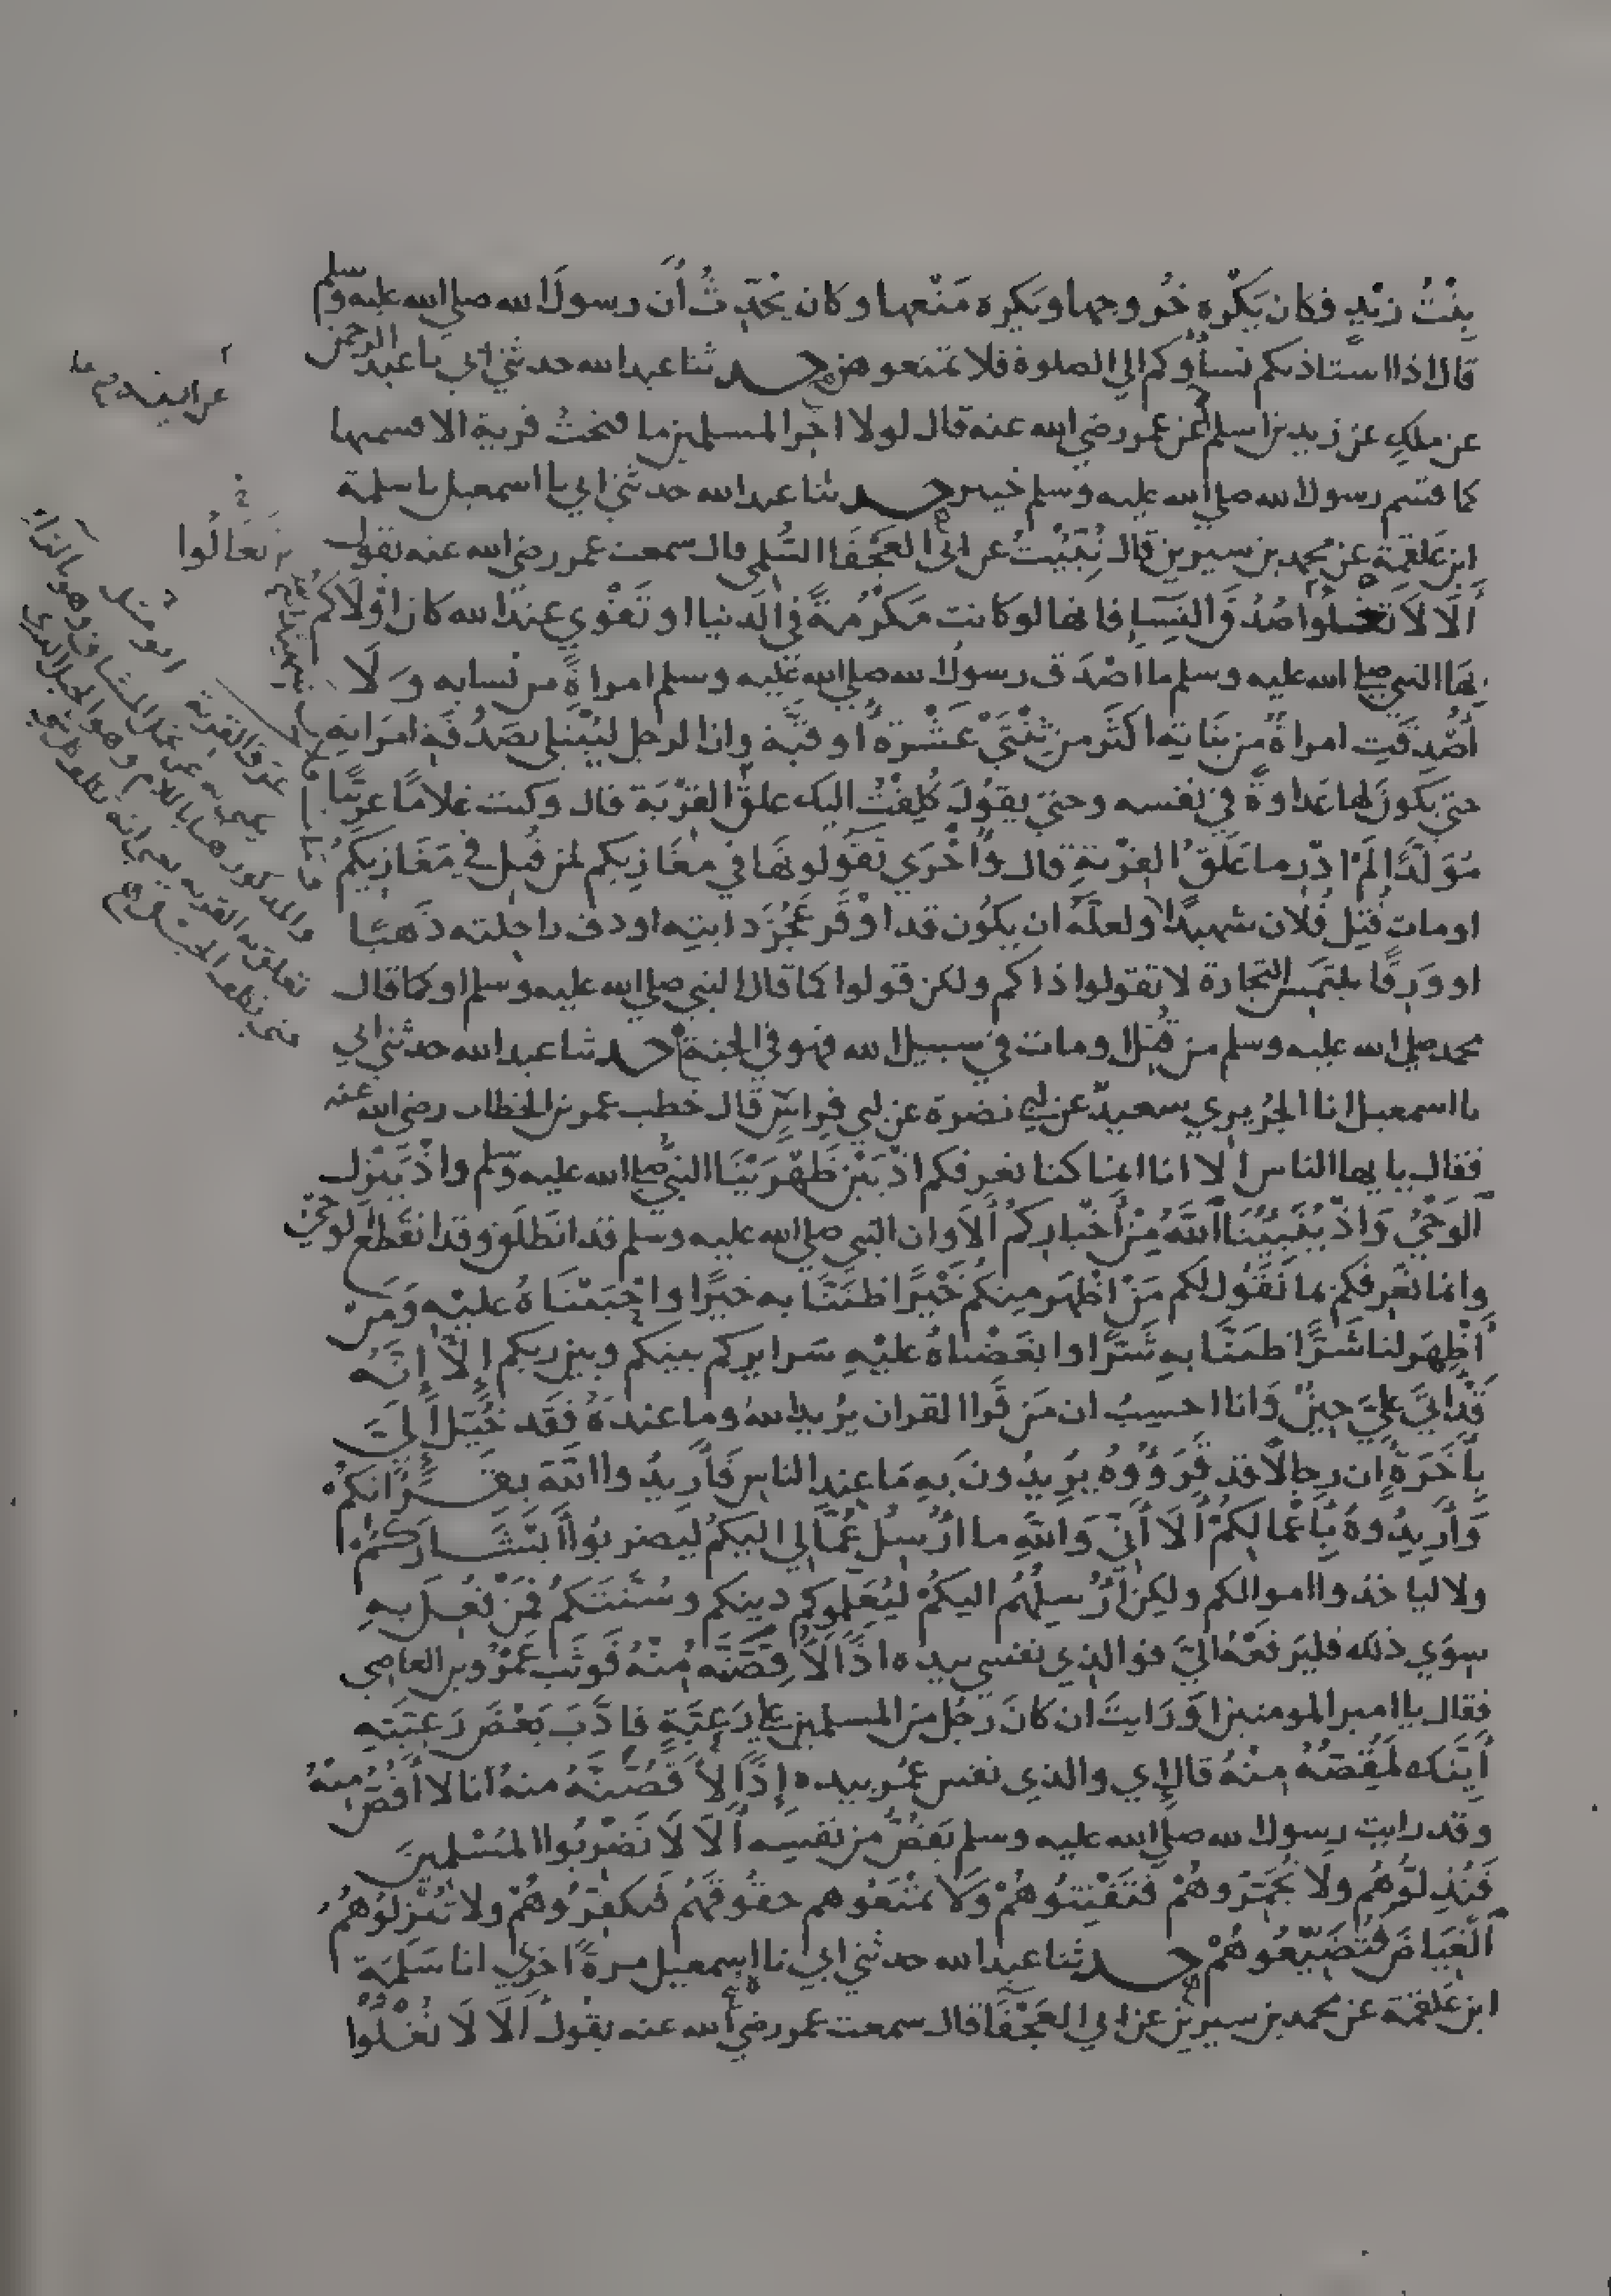 بِنْتُ زَيْدٍ فكان يَكْرَه خُرُوجها ويَكره مَنْعها وكان يُحَدِّثُ أَنَّ رسول الله صلى الله عليه وسلم
قال اذا استاذنكم نساؤكم الي الصلوة فلا تمنعوهن حدثنا عبد الله حدثني ابي يا عبد الرحمن
عن ملكٍ عن زيد بن اسلم عن عمر رضي الله عنه قال لولا اخر المسلمين ما فتحتُ قرية الا قسمتها
كما قسم رسول الله صلى الله عليه وسلم خيبر حدثنا عبد الله حدثني ابي نا اسمعيل نا سلمة
ابن علقمة عن محمد بن سيرين قال نُبِّئْتُ عن ابي العَجْفَا السُّلمي قال سمعت عمر رضي الله عنه يقول
أَلَا لَا تغلوا صُدُقَ النِّسَاِ فانها لو كانت مَكْرُمةً في الدنيا او تَقْوي عند الله كان اوْلَاكُم
بها النبي صلى الله عليه وسلم ما اصْدَق رسول الله صلى الله عليه وسلم امراةً من نسايه وَلَا
أُصْدِقَتِ امراةٌ من بَنَاته اكثر من ثِنْتَيْ عَشْرَةَ أُوقيَّة وان الرجل ليُبْتلي بصَدُقَةِ امرَاتِه
حتي يَكونَ لها عَداوةٌ في نفسه وحتي يقُولَ كُلِفْتُ اليك علق القِرْبَة قال وكنت غلامًا عربيًّا
مُوَلَّدًا لَمْ ادْرِ ما عَلَقُ القِرْبةِ قال وَأُخْرَي تَقُولونَها في مغَازيكم لمن قُتِل في مَغَازِيكم
او مات قُتِل فُلان شهيدًا ولعلَّهُ ان يكُون قد اوْقَر عَجُزَ دابتِه او دف راحلته ذَهبًا
او وَرِقًا يلتمس التجارة لا تقولوا ذاكم ولكن قولوا كما قال النبي صلى الله عليه وسلم او كما قال
محمد صلى الله عليه وسلم من قُتِل او مات في سبيل الله فهو في الجنة حدثنا عبد الله حدثني ابي
نا اسمعيل انا الجُرَيري سعيد عن ابي نضرة عن ابي فِراسٍ قال خطب عمر بن الخطاب رضي الله عنه
فقال يا يها الناس الا انا انما كنا نعرفكم اذْ بَيْن ظَهْرَيْنَا النبي صلى الله عليه وسلم واذْ يَنْزل
الوَحْيُ وَاذْ يُنَبِّئُنَا اللَّهُ مِنْ أَخْبَارِكُمْ أَلَا وان النبي صلى الله عليه وسلم قد انطَلَق وقد انقَطَع الوحيُ
وانما نَعْرِفكم بما نَقُول لكم مَنْ اظْهَر مِنكُمْ خَيْرًا ظَنَنَّا به خيرًا واحْبَبْنَاهُ عليْه وَمَنْ
أَظْهَر لنا شَرًّا ظَنَنَّا به شَرًّا وابْغَضْنَاهُ عليْهِ سَرايركم بينكم وبين ربكم أَلَا إِنَّهُ
قَدْ اتَي عليَّ حِينٌ وَانا احسِبُ ان مَن قَرا القران يُريد الله وما عندَهُ فقد خُيِّلَ إِلَيَّ
بِأَخَرَةٍ إِن رجالًا قد قَرَؤُوهُ يُرِيدُونَ بِهِ مَا عِند الناس فأرِيدُوا اللَّهَ بقرانكم
وَأَرِيدُوهُ بأَعْمالِكُمْ أَلَا أَنِّي وَاللَّهِ ما ارْسِلُ عُمَّالي اليكمْ ليَضربُوا أَبْشَارَكُمْ
ولا لياخذوا اموالكم ولكن أُرْسِلُهُم اليكمْ ليُعَلِّموكم دينكم وسُنَّتَكمْ فمَنْ فُعِلَ بِهِ
سِوَي ذلك فليَرْفَعْهُ اليَّ فوالذِي نفسي بيده اذًا لَأُقِصَّنَّه مِنْهُ فَوثَبَ عَمْرُو بن العاصِي
فقال يا امير المومنين اوَرَايتَ ان كانَ رَجُل من المسلمين علي رَعِيَّةٍ فادَّبَ بَعْضَ رَعِيَّتِهِ
أَيِنَّكَ لَمُقِصُّهُ مِنْهُ قال إِي والذي نفس عمر بيده إِذًا لَأُقِصَّنَّهُ منهُ انا لا أُقِصُّ مِنهُ
وقد رايت رسول الله صلى الله عليه وسلم يَقُصُّ من نفسِه أَلَا لَا تَضْربُوا المُسْلِمينَ
فَتُذِلُّوهُم ولا تُجَمِّرُوهُمْ فَتَفْتِنُوهُمْ وَلَا تمْنَعُوهم حقُوقهُم فَتكفِّرُوهُمْ ولا تُنْزِلُوهُمُ
الغِيَاضَ فتُضَيِّعُوهُمْ حدثنا عبد الله حدثني ابي نا اسمعيل مرةً اخرَي انا سَلَمَة
ابن علقمة عن محمد بن سيرين عن ابي العَجْفَا قال سمعت عمر رضي الله عنه يقُولُ أَلَا لَا تُغْلُوْا
تَغَالُوا